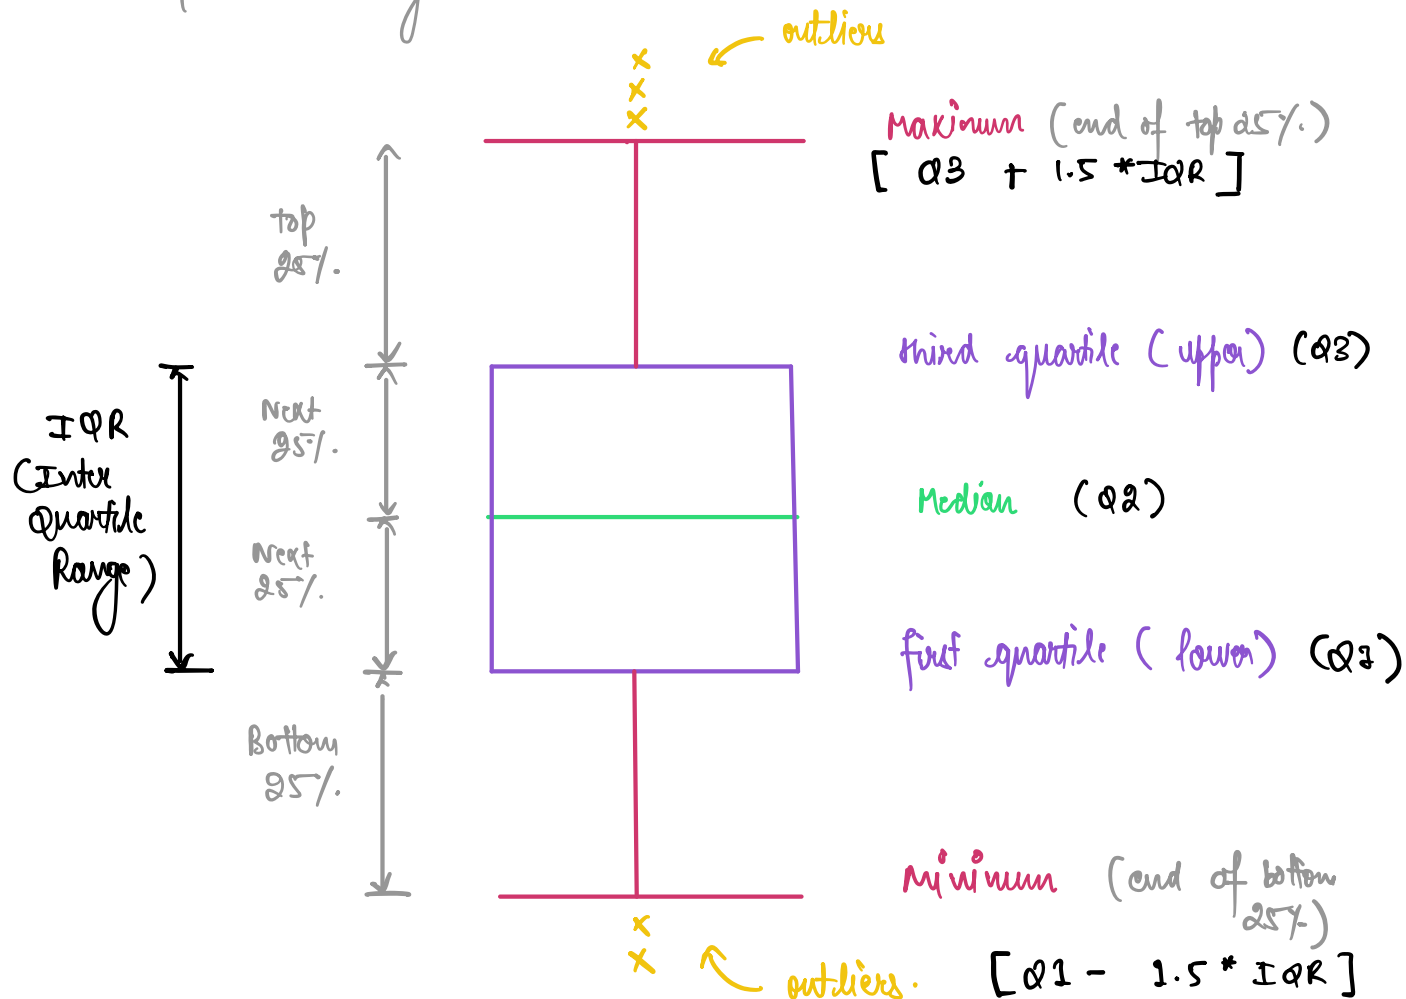 outliers
Maximum (end of top 25%)
[ Q3 + 1.5 * IQR ]
top
25%
third quartile (upper) (Q3)
Next
25%
IQR
(Inter
Quartile
Range)
Median (Q2)
Next
25%
first quartile (lower) (Q1)
Bottom
25%
Minimum (end of bottom
25%)
[ Q1 - 1.5 * IQR ]
outliers.